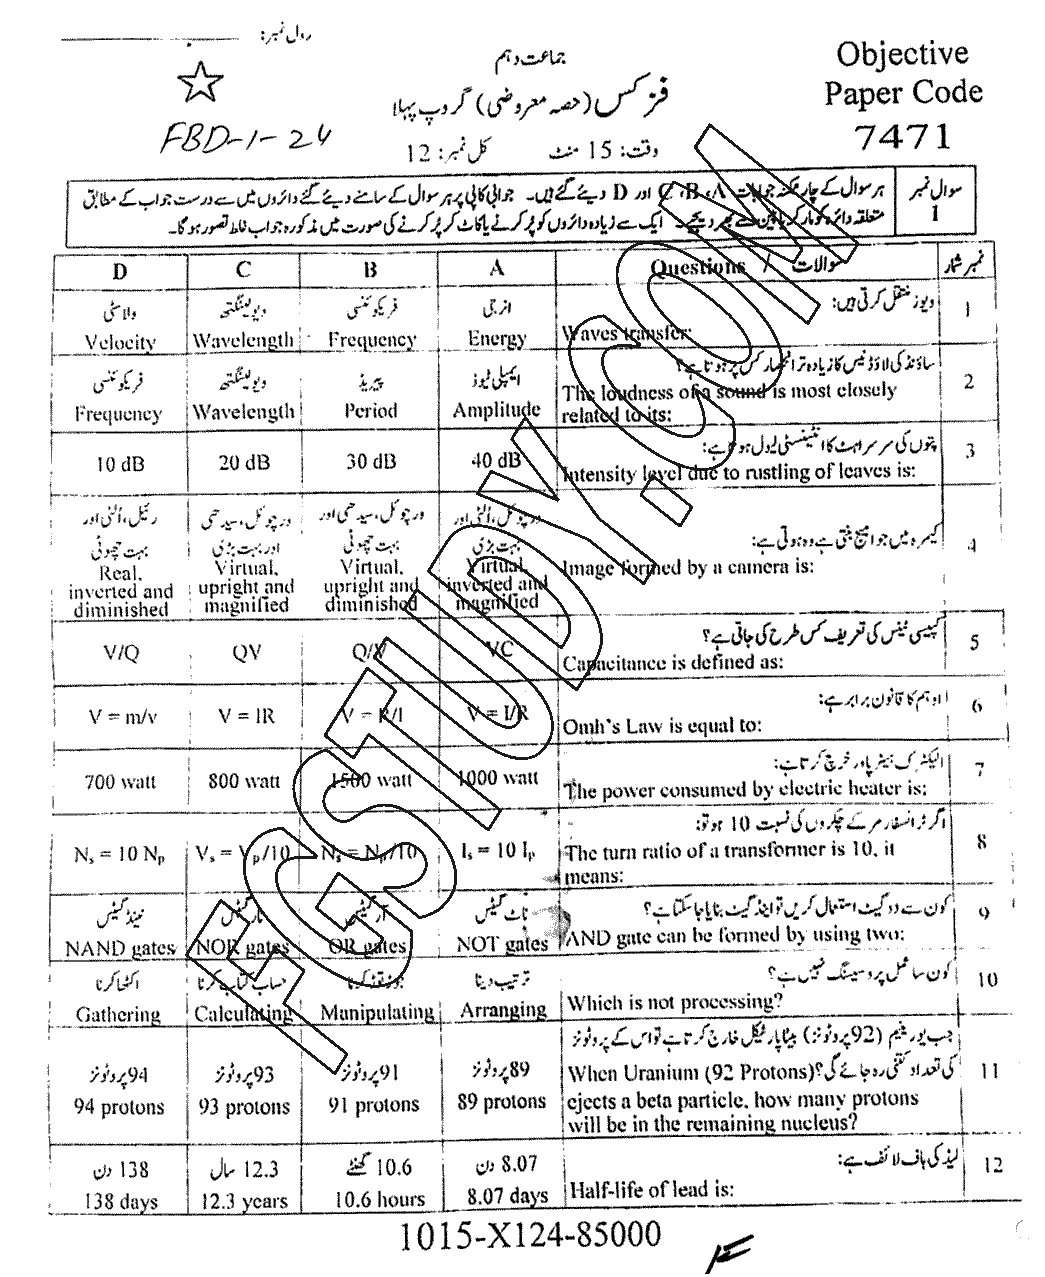 رول نمبر:
جماعت دہم
Objective
Paper Code
7471
فزکس (حصہ معروضی) گروپ پہلا
FBD-1-24
وقت: 15 منٹ کل نمبر: 12
سوال نمبر 1
ہر سوال کے چار ممکنہ جوابات A، B، C اور D دیئے گئے ہیں۔ جوابی کاپی پر ہر سوال کے سامنے دیئے گئے دائروں میں سے درست جواب کے مطابق
متعلقہ دائرہ کو مارکر یا پین سے بھر دیجیے۔ ایک سے زیادہ دائروں کو پُر کرنے یا کاٹ کر پُر کرنے کی صورت میں مذکورہ جواب غلط تصور ہوگا۔
D C B A Questions / سوالات نمبر شمار
ویوز منتقل کرتی ہیں: 1
ولاسٹی ویولینگتھ فریکوئنسی انرجی
Velocity Wavelength Frequency Energy Waves transfer:
ساؤنڈ کی لاؤڈنیس کا زیادہ تر انحصار کس پر ہوتا ہے؟ 2
فریکوئنسی ویولینگتھ پیریڈ ایمپلی ٹیوڈ
Frequency Wavelength Period Amplitude The loudness of a sound is most closely
related to its:
پتوں کی سرسراہٹ کا انٹینسٹی لیول ہوتا ہے: 3
10 dB 20 dB 30 dB 40 dB Intensity level due to rustling of leaves is:
کیمرہ میں جو امیج بنتی ہے وہ ہوتی ہے: 4
رئیل، اُلٹی اور بہت چھوٹی
ورچوئل، سیدھی اور بہت بڑی
ورچوئل، سیدھی اور بہت چھوٹی
ورچوئل، اُلٹی اور بہت بڑی
Real, inverted and diminished
Virtual, upright and magnified
Virtual, upright and diminished
Virtual, inverted and magnified
Image formed by a camera is:
کپیسی ٹینس کی تعریف کس طرح کی جاتی ہے؟ 5
V/Q QV Q/V VC Capacitance is defined as:
اوہم کا قانون برابر ہے: 6
V = m/v V = IR V = R/I V = I/R Omh's Law is equal to:
الیکٹرک ہیٹر پاور خرچ کرتا ہے: 7
700 watt 800 watt 1500 watt 1000 watt The power consumed by electric heater is:
اگر ٹرانسفارمر کے چکروں کی نسبت 10 ہو تو: 8
Ns = 10 Np Vs = Vp/10 Ns = Np/10 Is = 10 Ip The turn ratio of a transformer is 10, it
means:
کون سے دو گیٹ استعمال کریں تو اینڈ گیٹ بنایا جاسکتا ہے؟ 9
نینڈ گیٹس نار گیٹس آر گیٹس ناٹ گیٹس
NAND gates NOR gates OR gates NOT gates AND gate can be formed by using two:
کون سا عمل پروسیسنگ نہیں ہے؟ 10
اکٹھا کرنا حساب کتاب کرنا جوڑ توڑ کرنا ترتیب دینا
Gathering Calculating Manipulating Arranging Which is not processing?
جب یورینیم (92 پروٹونز) بیٹا پارٹیکل خارج کرتا ہے تو اس کے پروٹونز
کی تعداد کتنی رہ جائے گی؟ 11
94 پروٹونز 93 پروٹونز 91 پروٹونز 89 پروٹونز
94 protons 93 protons 91 protons 89 protons When Uranium (92 Protons)
ejects a beta particle, how many protons
will be in the remaining nucleus?
لیڈ کی ہاف لائف ہے: 12
138 دن 12.3 سال 10.6 گھنٹے 8.07 دن
138 days 12.3 years 10.6 hours 8.07 days Half-life of lead is:
1015-X124-85000
FGSTUDY.COM